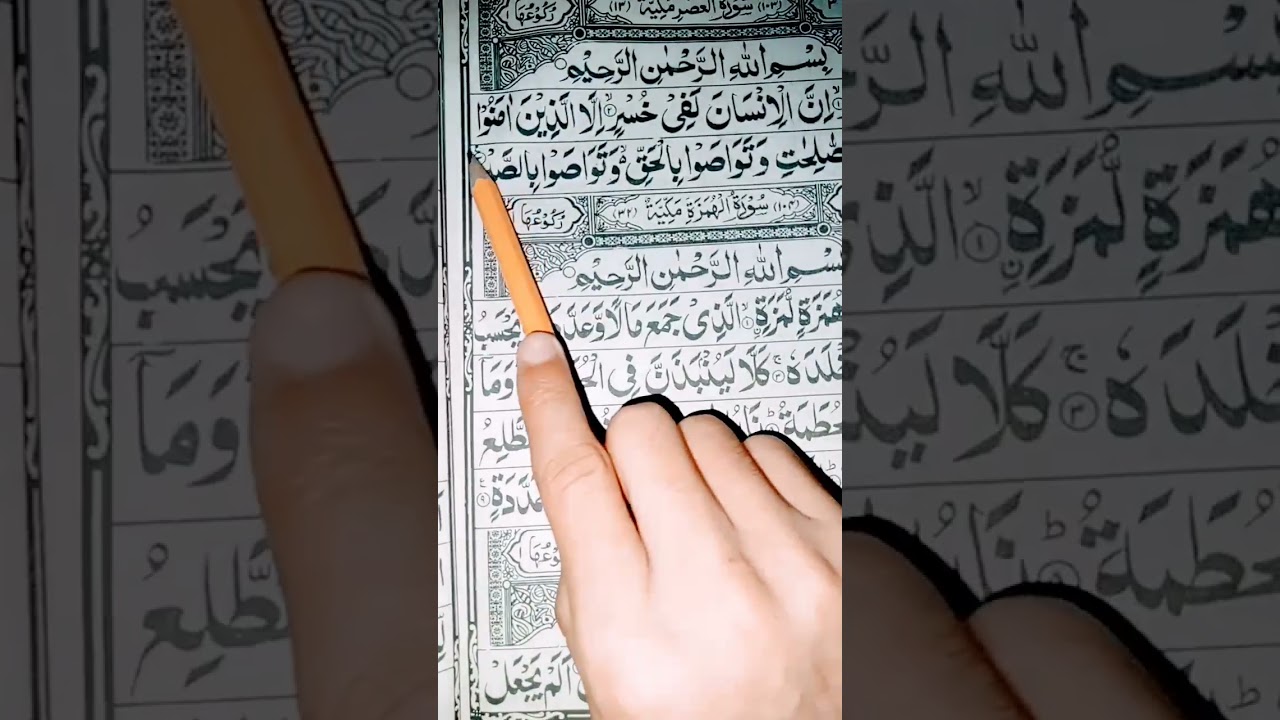 رُكُوْعُهَا (١٠٣) سُوْرَةُ الْعَصْرِ مَكِّيَّةٌ (١٣)
بِسْمِ اللهِ الرَّحْمٰنِ الرَّحِيْمِ
اِنَّ الْاِنْسَانَ لَفِيْ خُسْرٍ ۙ۲ اِلَّا الَّذِيْنَ اٰمَنُوْا
صّٰلِحٰتِ وَتَوَاصَوْا بِالْحَقِّ ۙ وَتَوَاصَوْا بِالصَّبْ
(١٠٤) سُوْرَةُ الْهُمَزَةِ مَكِّيَّةٌ (٣٢) رُكُوْعُهَا ١
بِسْمِ اللهِ الرَّحْمٰنِ الرَّحِيْمِ
هُمَزَةٍ لُّمَزَةِ ۙ۱ الَّذِيْ جَمَعَ مَالًا وَّعَدَّ يَحْسَبُ
خْلَدَهٗ ۚ۳ كَلَّا لَيُنْۢبَذَنَّ فِي الْحُ وَمَآ
حُطَمَةُ ؕ نَا طَّلِعُ
مَّدَّدَةٍ ۹
رُكُوْعُهَا ١
اَلَمْ يَجْعَلْ